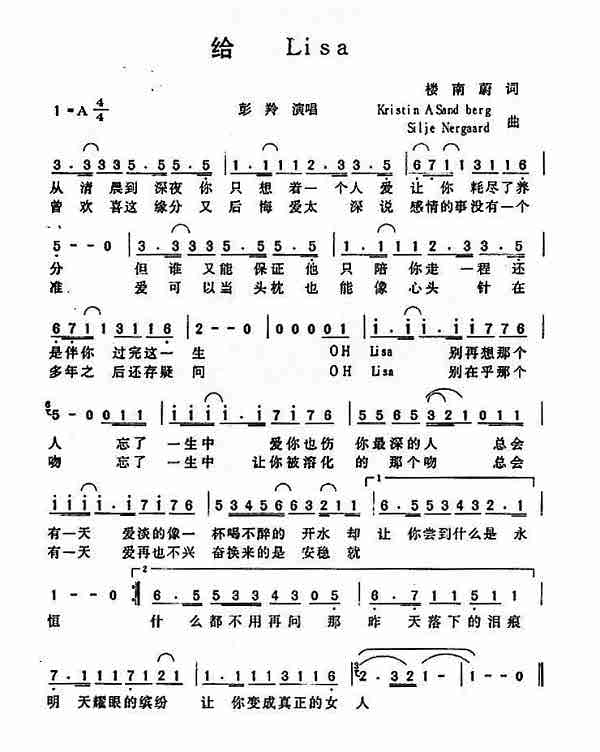 给 Lisa
楼南蔚 词
1=A 4/4 彭羚 演唱 Kristin A Sand berg
Silje Nergaard 曲
3.3335.5.5 | 1.1112.33.5 | 67113111
从清晨到深夜你只想着一个人爱让你耗尽了养
曾欢喜这缘分又后悔爱太深说感情的事没有一个
5--0 | 3.3335.5.5 | 1.1112.33.5
分 但谁又能保证他只陪你走一程还
准. 爱可以当头枕也能像心头针在
67113116 | 2--0 | 00001 | i.ii.ii776
是伴你过完这一生 OH Lisa 别再想那个
多年之后还存疑问 OH Lisa 别在乎那个
6 5-0011 | iiii.i7i76 | 556565321011
人 忘了一生中 爱你也伤你最深的人 总会
吻 忘了一生中 让你被溶化的那个吻 总会
1
iiii.i7i76 | 5345656 3211 | 6.5534 32.1
有一天 爱淡的像一杯喝不醉的开水却让你尝到什么是永
有一天 爱再也不兴奋换来的是安稳就
2
1--0 :‖ 6.55334305 | 6.711 51151
恒 什么都不用再问那昨天落下的泪痕
7.1117121 | 1.1113116 | 3 2.321-1- | 1--0 ‖
明天耀眼的缤纷 让你变成真正的女人